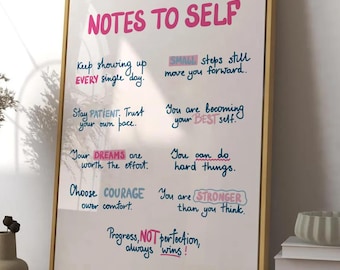 NOTES TO SELF
Keep showing up
EVERY single day.
SMALL steps still
move you forward.
Stay PATIENT. Trust
your own pace.
You are becoming
your BEST self.
Your DREAMS are
worth the effort.
You can do
hard things.
Choose COURAGE
over comfort.
You are STRONGER
than you think.
Progress, NOT perfection,
always wins!